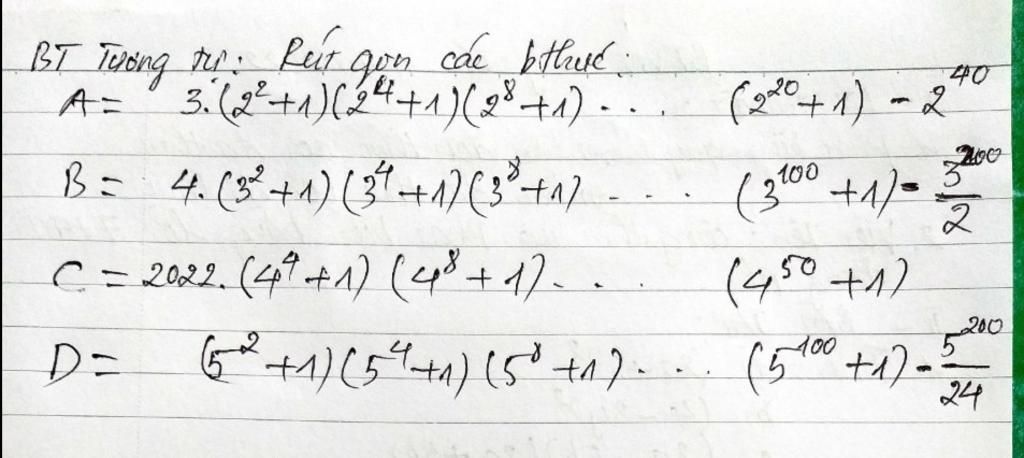 BT Tương tự: Rút gọn các bthức:
A = 3.(2²+1)(2⁴+1)(2⁸+1) ... (2²⁰+1) - 2⁴⁰
B = 4.(3²+1)(3⁴+1)(3⁸+1) ... (3¹⁰⁰+1) - 3²⁰⁰/2
C = 2022.(4⁴+1)(4⁸+1)... (4⁵⁰+1)
D = (5²+1)(5⁴+1)(5⁸+1)... (5¹⁰⁰+1) - 5²⁰⁰/24